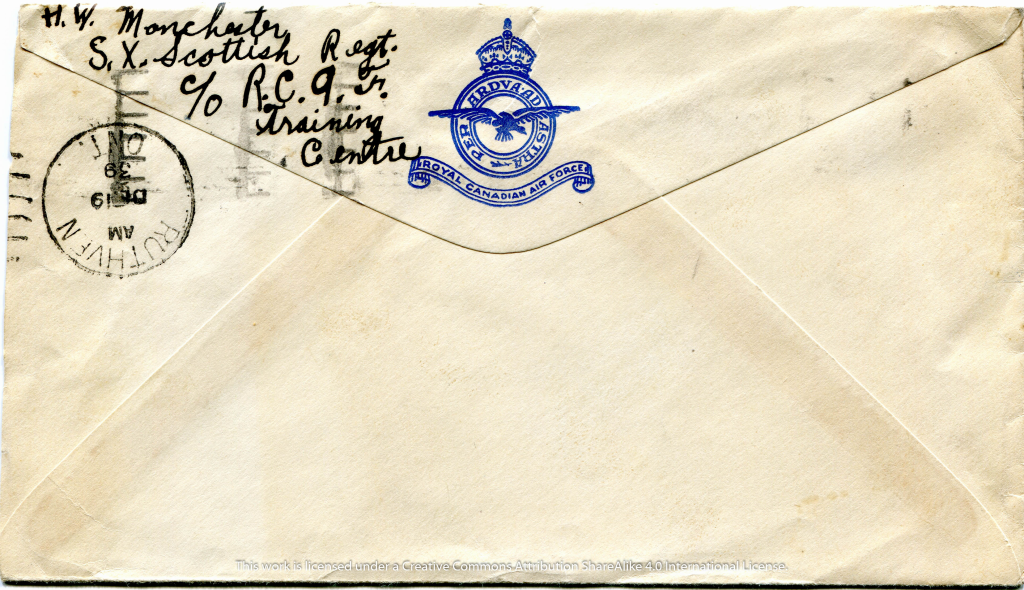 H.W. Manchester,
S.X. Scottish Regt.
c/o R.C.A. Tr.
Training
Centre
PER ARDVA AD ASTRA
ROYAL CANADIAN AIR FORCE
RUTHVEN
AM
DE 19
39
ONT.
This work is licensed under a Creative Commons Attribution ShareAlike 4.0 International License.